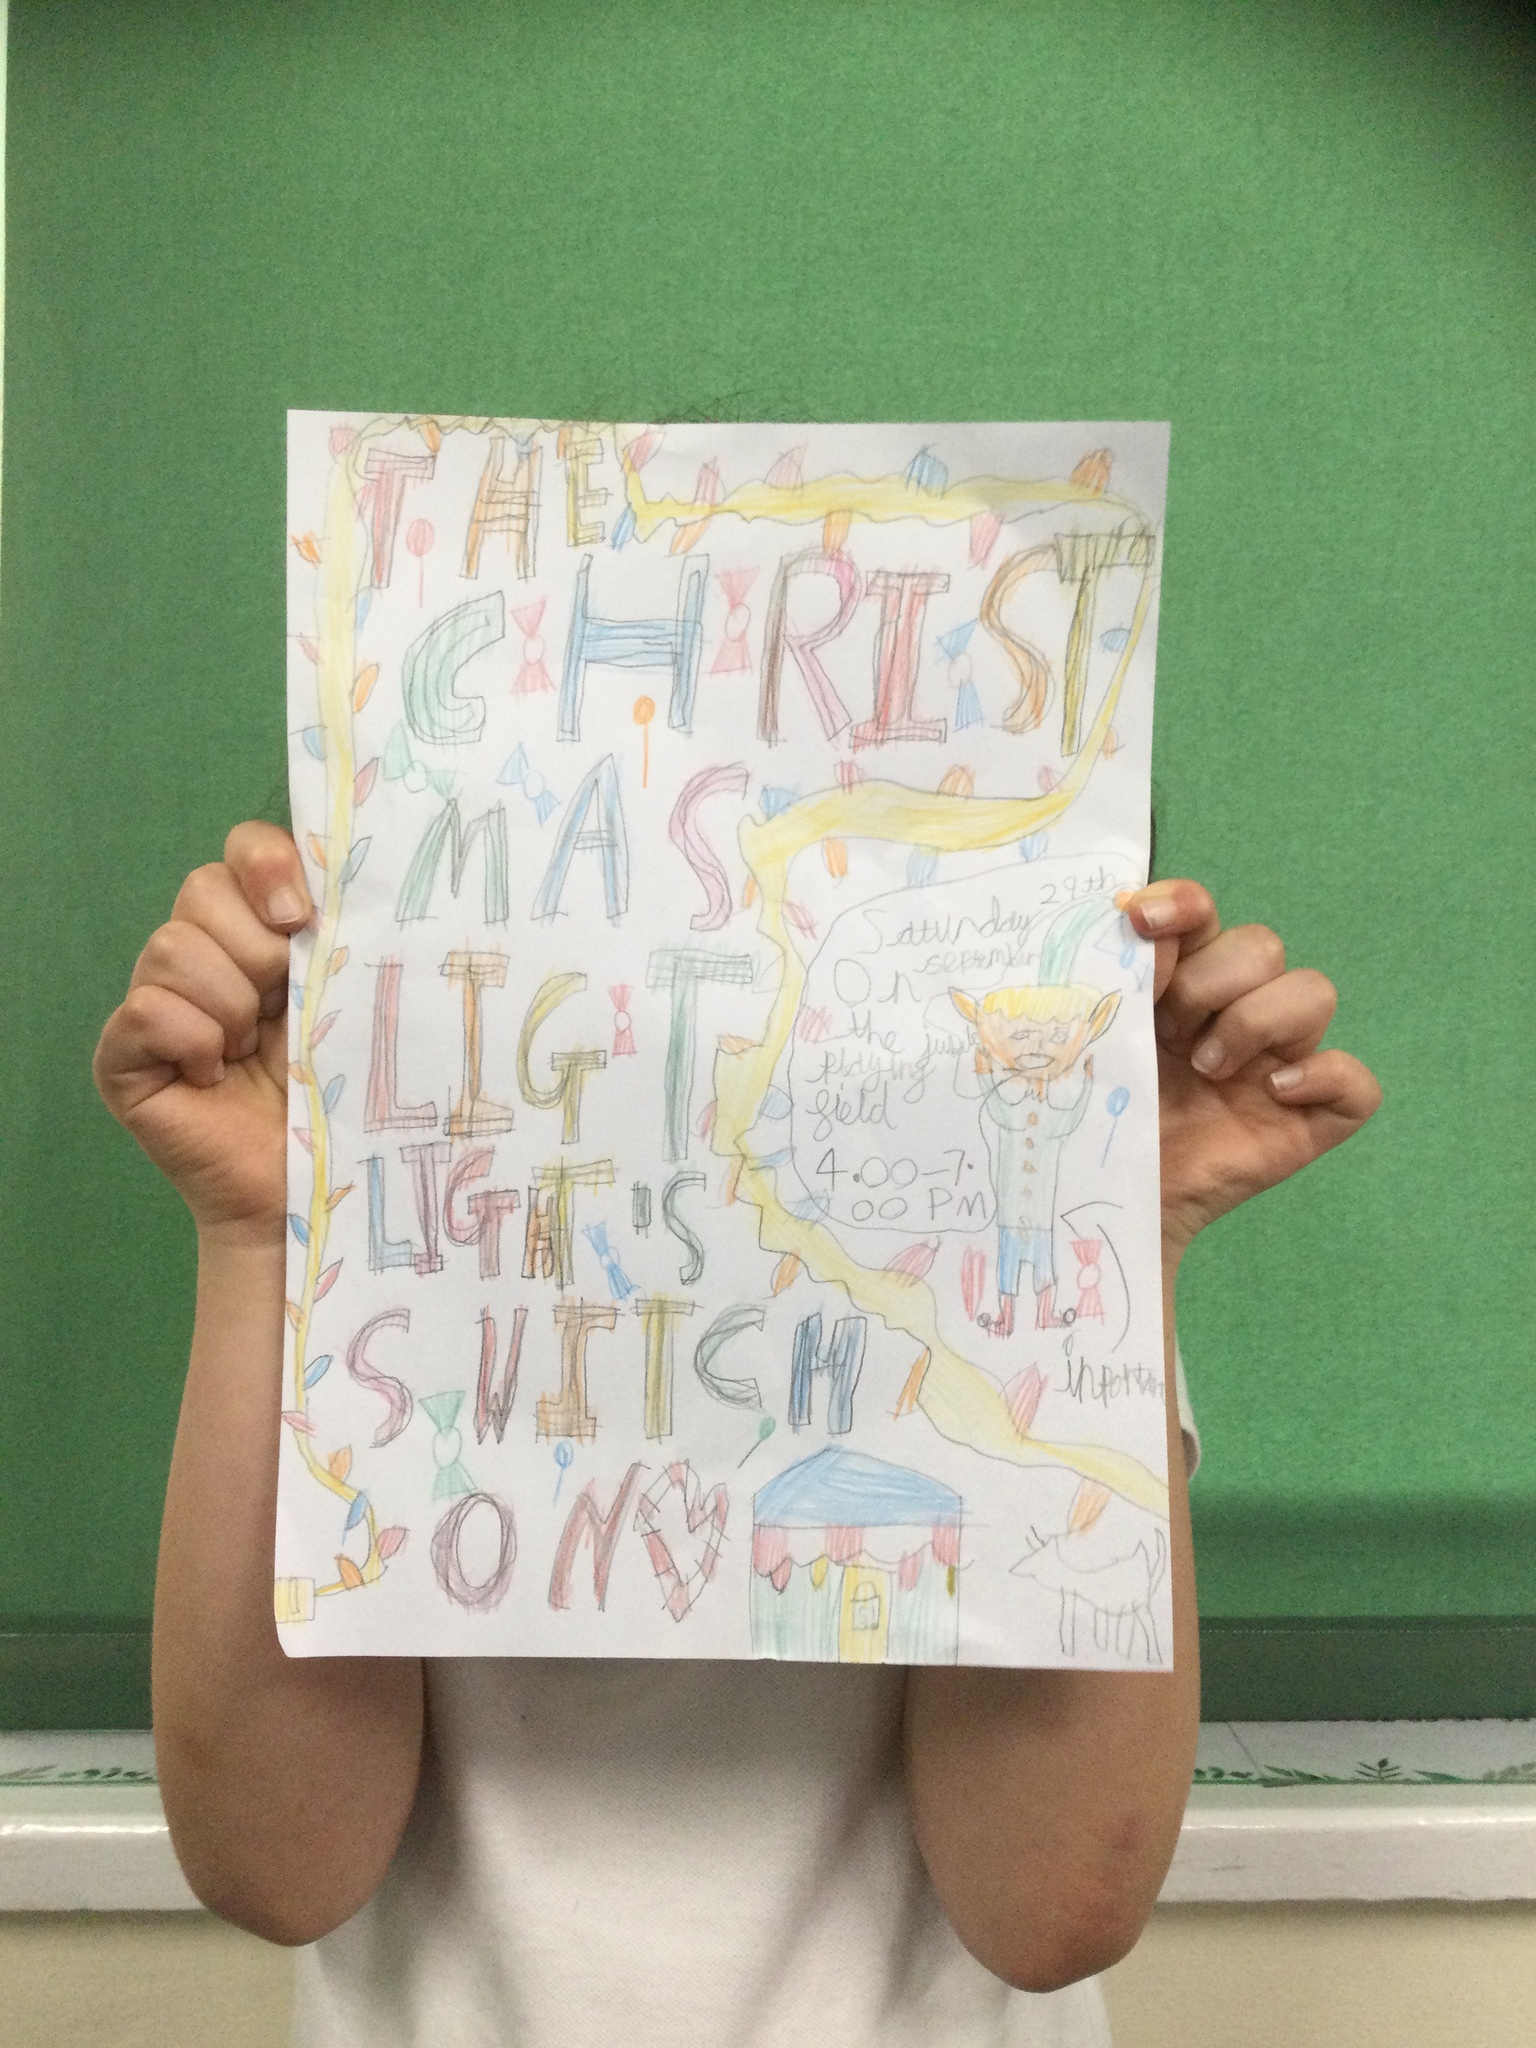 THE
CHRIST
MAS
LIGT
LIGHT'S
SWITCH
ON
Saturday 29th
On septembur
the jubilee
playing
field
4.00-7.
00 PM
inportant